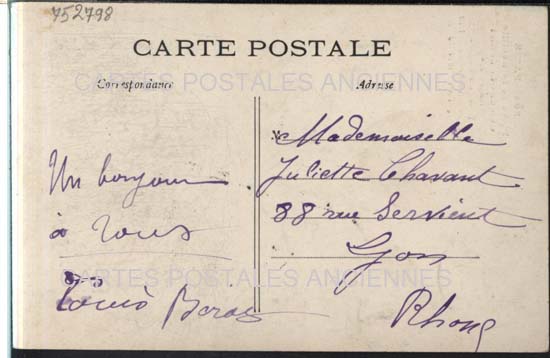 752798
CARTE POSTALE
CARTES POSTALES ANCIENNES
Correspondance
Adresse
Un bonjour
à tous
Louis
Mademoiselle
Juliette Chavant
88 rue Servient
Lyon
Rhone
CARTES POSTALES ANCIENNES